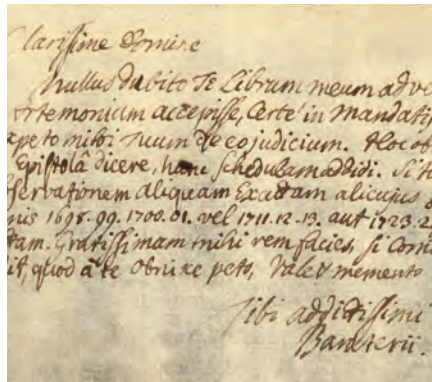 Clarissime Domine
Nullus dubito Te Librum meum adve
rtemonium accepisse, Certe in Mandati
peto mihi Tuum de eo judicium. Hoc ob
Epistolâ dicere, hanc schedulam addidi. Si
servationem aliquam Exactam alicujus
nis 1698. 99. 1700. 01. vel 1711. 12. 13. aut 1723. 2
tam. Gratissimam mihi rem facies, si Com
it, quod â te obnixe peto, Vale & memento
Tibi addictissimi